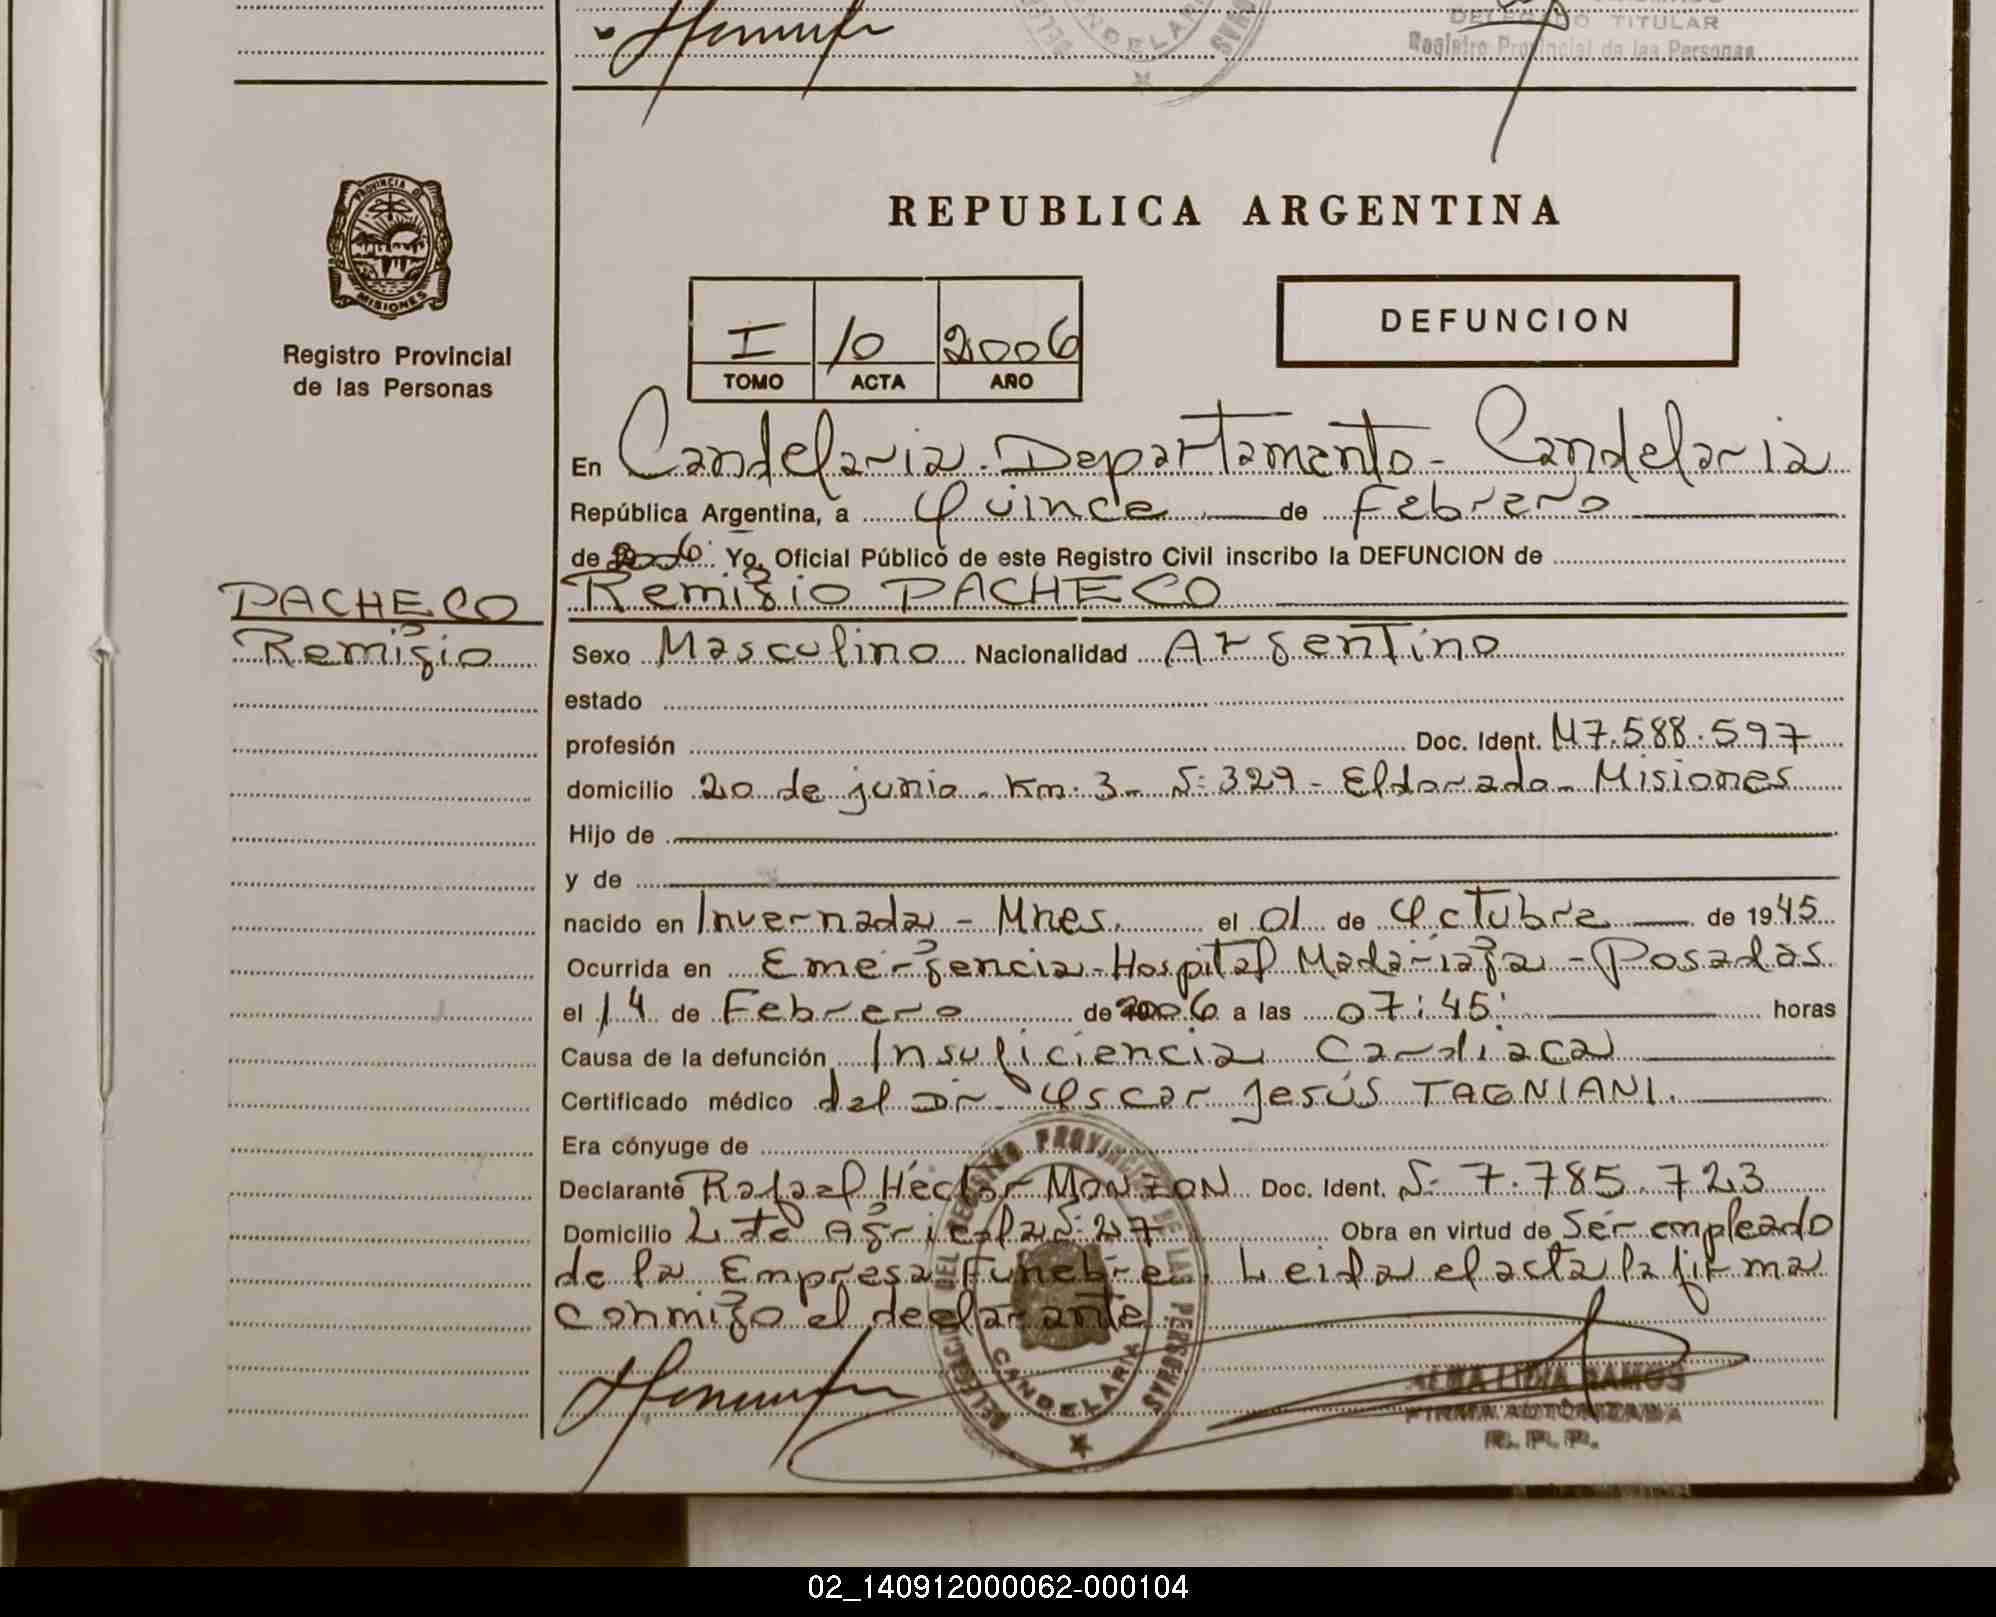 DELEGADO TITULAR
Registro Provincial de las Personas
CANDELARIA
PROVINCIA DE
MISIONES
Registro Provincial
de las Personas
REPUBLICA ARGENTINA
I 10 2006
TOMO ACTA AÑO
DEFUNCION
En Candelaria - Departamento - Candelaria
República Argentina, a Quince de Febrero
de 2006 Yo, Oficial Público de este Registro Civil inscribo la DEFUNCION de
PACHECO Remigio PACHECO
Remigio Sexo Masculino Nacionalidad Argentino
estado
profesión Doc. Ident. M7.588.597
domicilio 20 de junio - Km. 3 - S: 329 - Eldorado - Misiones
Hijo de
y de
nacido en Invernada - Mnes. el 01 de Octubre de 1945
Ocurrida en Emergencia - Hospital Madariaga - Posadas
el 14 de Febrero de 2006 a las 07:45 horas
Causa de la defunción Insuficiencia Cardiaca
Certificado médico del Dr. Oscar Jesús TAGNIANI.
Era cónyuge de
Declarante Rafael Héctor MONZON Doc. Ident. S: 7.785.723
Domicilio Lte Agricola S: 27 Obra en virtud de Ser empleado
de la Empresa Funebre. Leida el acta la firma
conmigo el declarante
DELEGACION DEL REGISTRO PROVINCIAL DE LAS PERSONAS
CANDELARIA
ALBA LIDIA RAMOS
FIRMA AUTORIZADA
R. P. P.
02_140912000062-000104